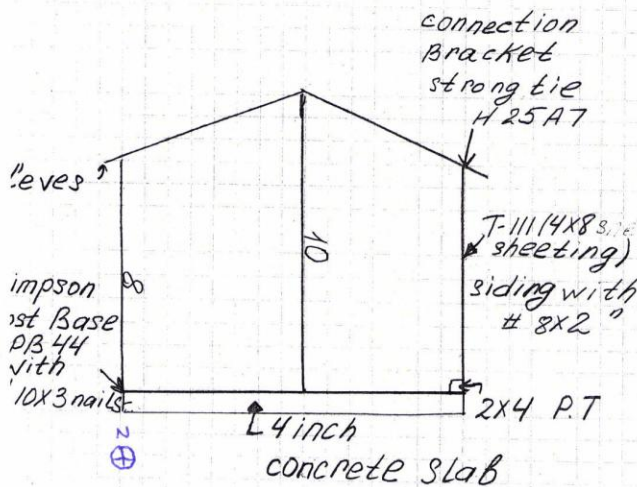 connection
Bracket
strong tie
H 25A7
"eves
T-111 (4X8 side
sheeting)
siding with
# 8X2"
8
10
impson
ost Base
PB 44
with
10X3 nails
2X4 P.T
4 inch
concrete slab
2